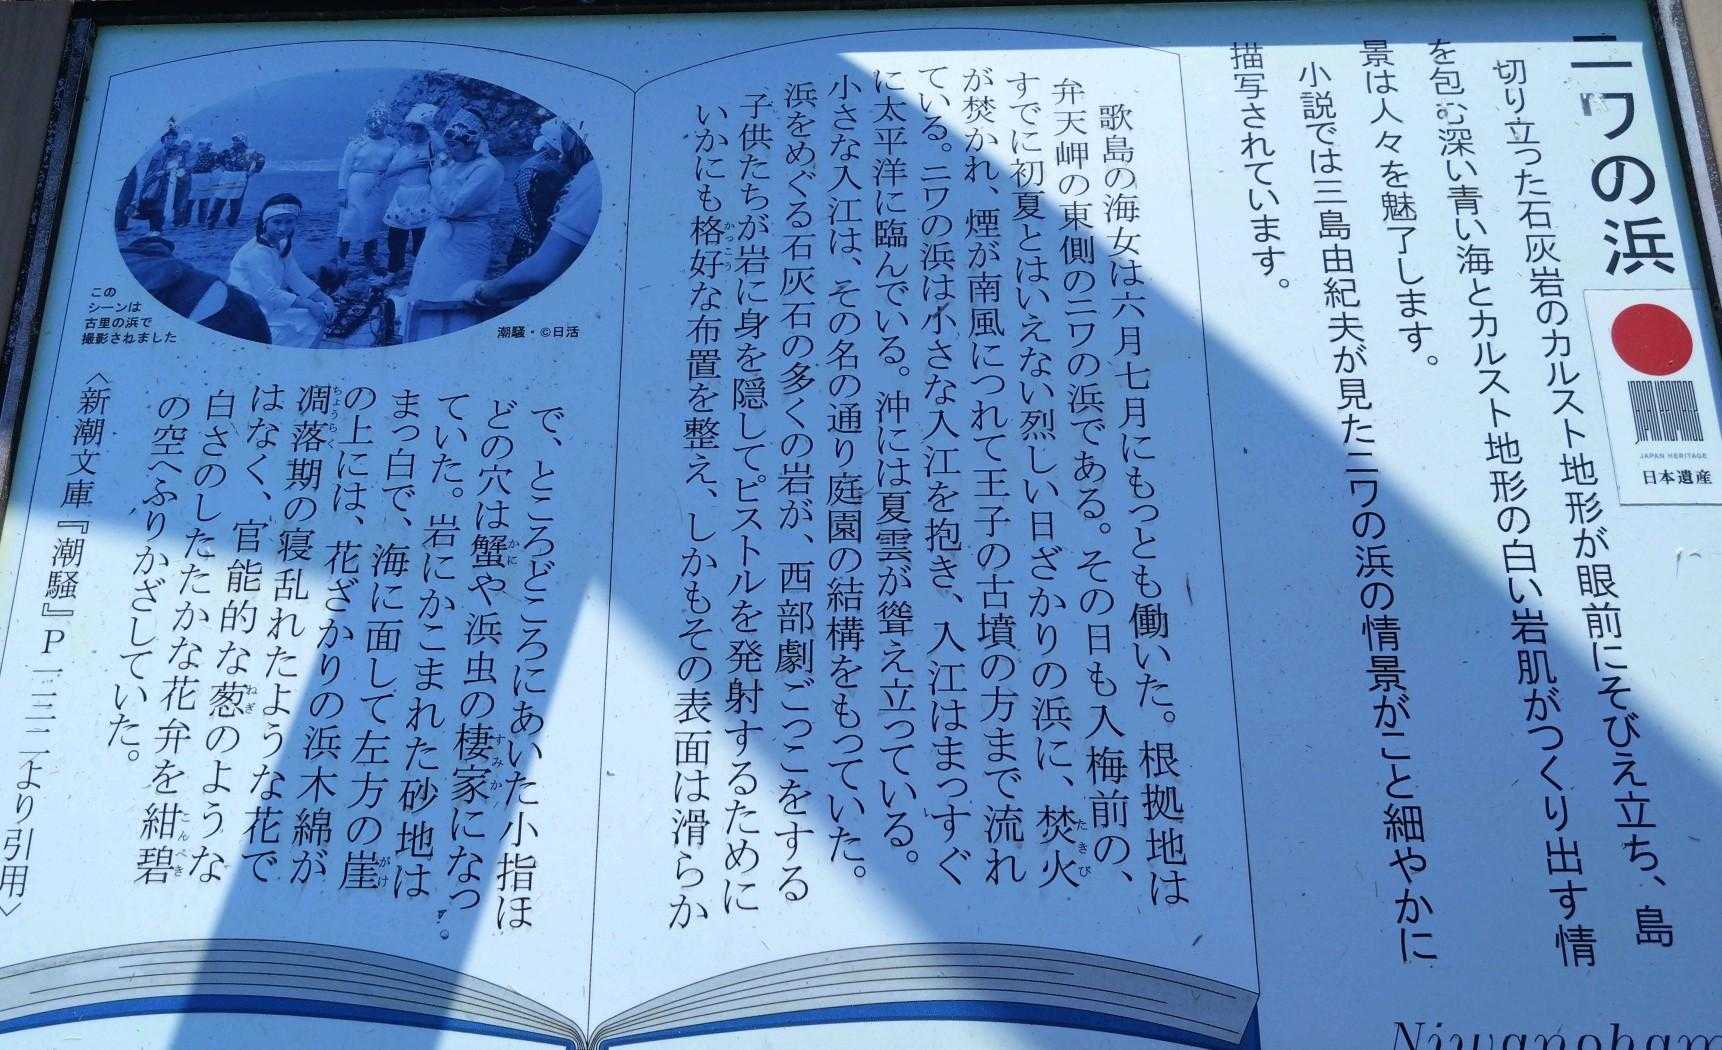 ニワの浜
JAPAN HERITAGE
日本遺産
切り立った石灰岩のカルスト地形が眼前にそびえ立ち、島
を包む深い青い海とカルスト地形の白い岩肌がつくり出す情
景は人々を魅了します。
小説では三島由紀夫が見たニワの浜の情景がこと細やかに
描写されています。
歌島の海女は六月七月にもっとも働いた。根拠地は
弁天岬の東側のニワの浜である。その日も入梅前の、
すでに初夏とはいえない烈しい日ざかりの浜に、焚火
たきび
が焚かれ、煙が南風につれて王子の古墳の方まで流れ
ている。ニワの浜は小さな入江を抱き、入江はまっすぐ
に太平洋に臨んでいる。沖には夏雲が聳え立っている。
小さな入江は、その名の通り庭園の結構をもっていた。
浜をめぐる石灰石の多くの岩が、西部劇ごっこをする
子供たちが岩に身を隠してピストルを発射するために
いかにも格好な布置を整え、しかもその表面は滑らか
かっこう
で、ところどころにあいた小指ほ
どの穴は蟹や浜虫の棲家になっ
かに
すみか
ていた。岩にかこまれた砂地は
まっ白で、海に面して左方の崖
がけ
の上には、花ざかりの浜木綿が
凋落期の寝乱れたような花で
ちょうらく
はなく、官能的な葱のような
ねぎ
白さのしたたかな花弁を紺碧
こんぺき
の空へふりかざしていた。
〈新潮文庫『潮騒』P一三二より引用〉
この
シーンは
古里の浜で
撮影されました
潮騒・©日活